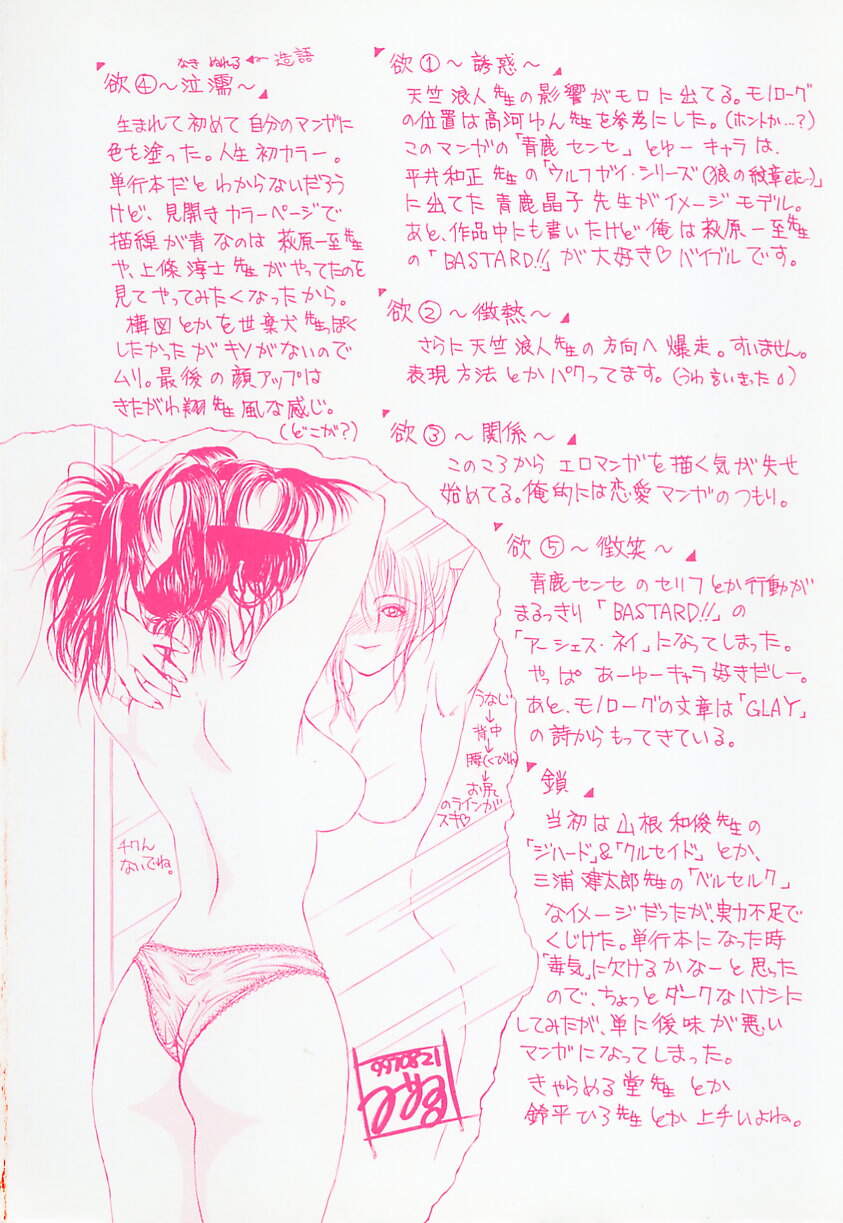 欲①～誘惑～
天竺浪人先生の影響がモロに出てる。モノローグ
の位置は高河ゆん先生を参考にした。(ホントか…?)
このマンガの「青鹿センセ」とゆーキャラは、
平井和正先生の「ウルフガイ・シリーズ(狼の紋章etc…)」
に出てた青鹿晶子先生がイメージモデル。
あと、作品中にも書いたけど俺は萩原一至先生
の「BASTARD!!」が大好き♡バイブルです。
欲②～微熱～
さらに天竺浪人先生の方向へ爆走。すいません。
表現方法とかパクってます。(うわ言いきった)
欲③～関係～
このころからエロマンガを描く気が失せ
始めてる。俺的には恋愛マンガのつもり。
なき ぬれる ←造語
欲④～泣濡～
生まれて初めて自分のマンガに
色を塗った。人生初カラー。
単行本だとわからないだろう
けど、見開きカラーページで
描線が青なのは萩原一至先生
や、上條淳士先生がやってたのを
見てやってみたくなったから。
構図とかを世棄犬先生っぽく
したかったがキソがないので
ムリ。最後の顔アップは
きたがわ翔先生風な感じ。
(どこが?)
欲⑤～微笑～
青鹿センセのセリフとか行動が
まるっきり「BASTARD!!」の
「アーシェス・ネイ」になってしまった。
やっぱあーゆーキャラ好きだしー。
あと、モノローグの文章は「GLAY」
の詩からもってきている。
鎖
当初は山根和俊先生の
「ジハード」&「クルセイド」とか、
三浦建太郎先生の「ベルセルク」
なイメージだったが、実力不足で
くじけた。単行本になった時
「毒気」に欠けるかなーと思った
ので、ちょっとダークなハナシに
してみたが、単に後味が悪い
マンガになってしまった。
きゃらめる堂先生とか
鈴平ひろ先生とか上手いよね。
うなじ
↓
背中
↓
腰(くびれ)
↓
お尻
のラインが
スキ♡
チクん
ないでね。
9970821